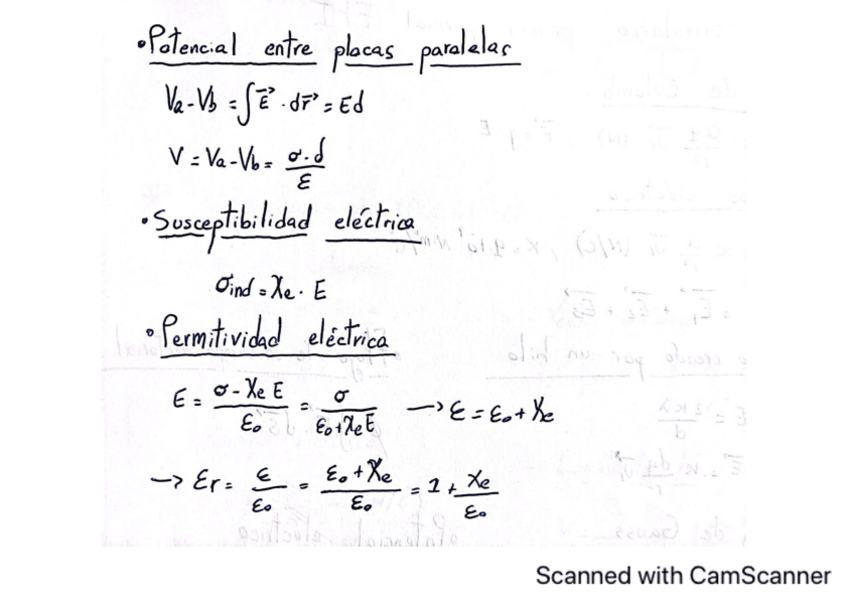 •Potencial entre placas paralelas
Va-Vb = ∫E⃗ · dr⃗ = Ed
V = Va-Vb = σ·d/ε
•Susceptibilidad eléctrica
σind = χe · E
•Permitividad eléctrica
E = (σ - χe E)/ε₀ = σ/(ε₀+χe E) → ε = ε₀ + χe
→ εr = ε/ε₀ = (ε₀ + χe)/ε₀ = 1 + χe/ε₀
Scanned with CamScanner